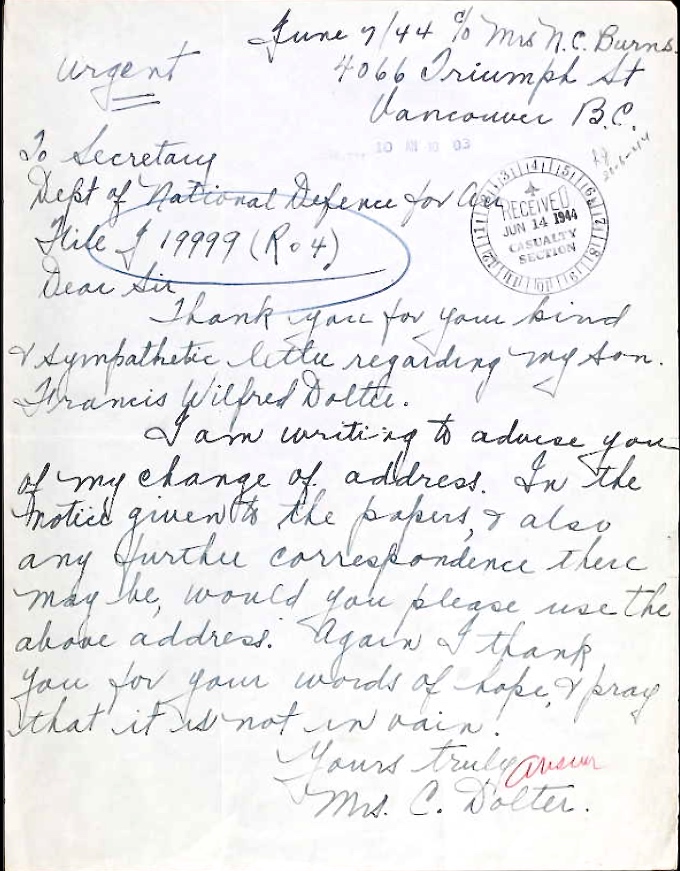 June 7/44 c/o Mrs N.C. Burns.
urgent
4066 Triumph St
Vancouver B.C.
10 03
To Secretary
Dept of National Defence for Air
File J 19999 (R.o 4)
RECEIVED
JUN 14 1944
CASUALTY
SECTION
Dear Sir
Thank you for your kind
& sympathetic letter regarding my son.
Francis Wilfred Dolter.
I am writing to advise you
of my change of address. In the
notice given to the papers, & also
any further correspondence there
may be, would you please use the
above address. Again I thank
you for your words of hope, & pray
that it is not in vain.
Yours truly
answer
Mrs. C. Dolter.